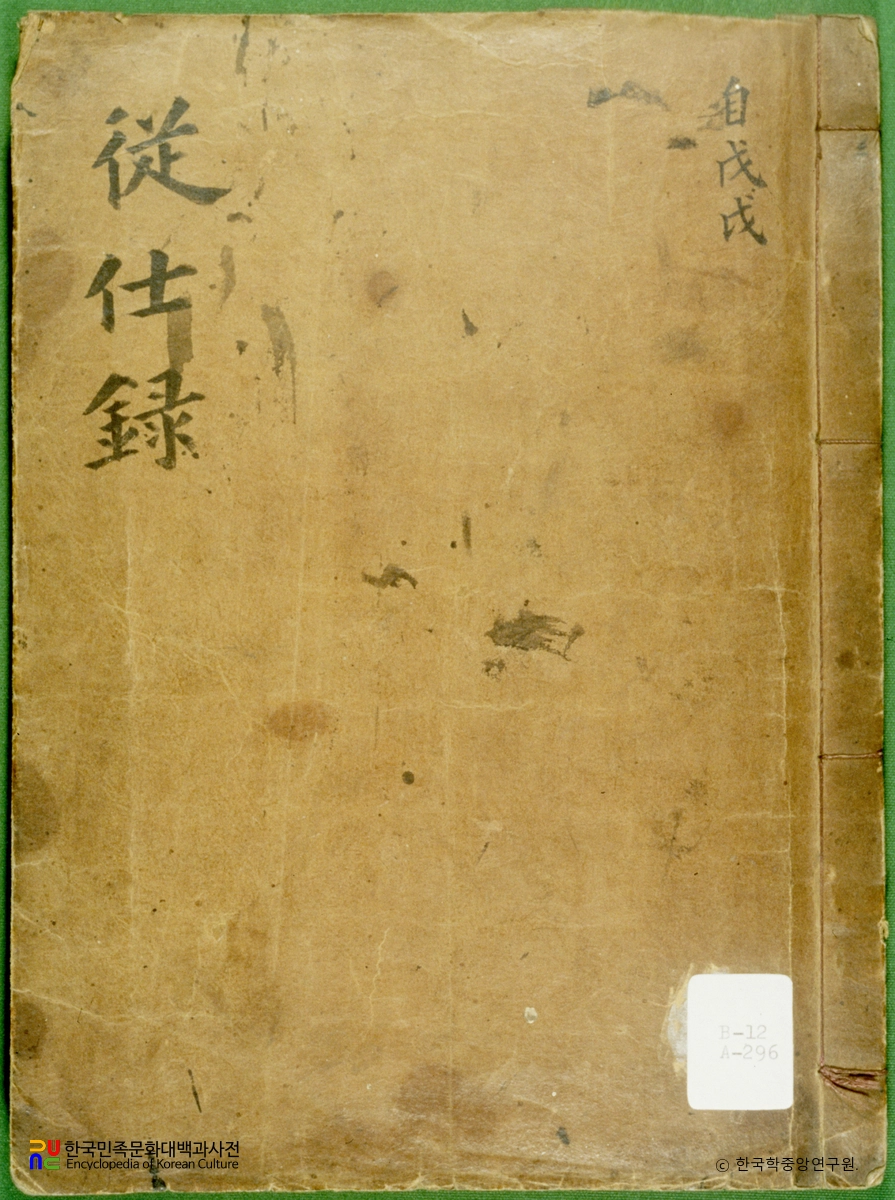 自戊戌
従仕録
B-12
A-296
한국민족문화대백과사전
Encyclopedia of Korean Culture
ⓒ 한국학중앙연구원.